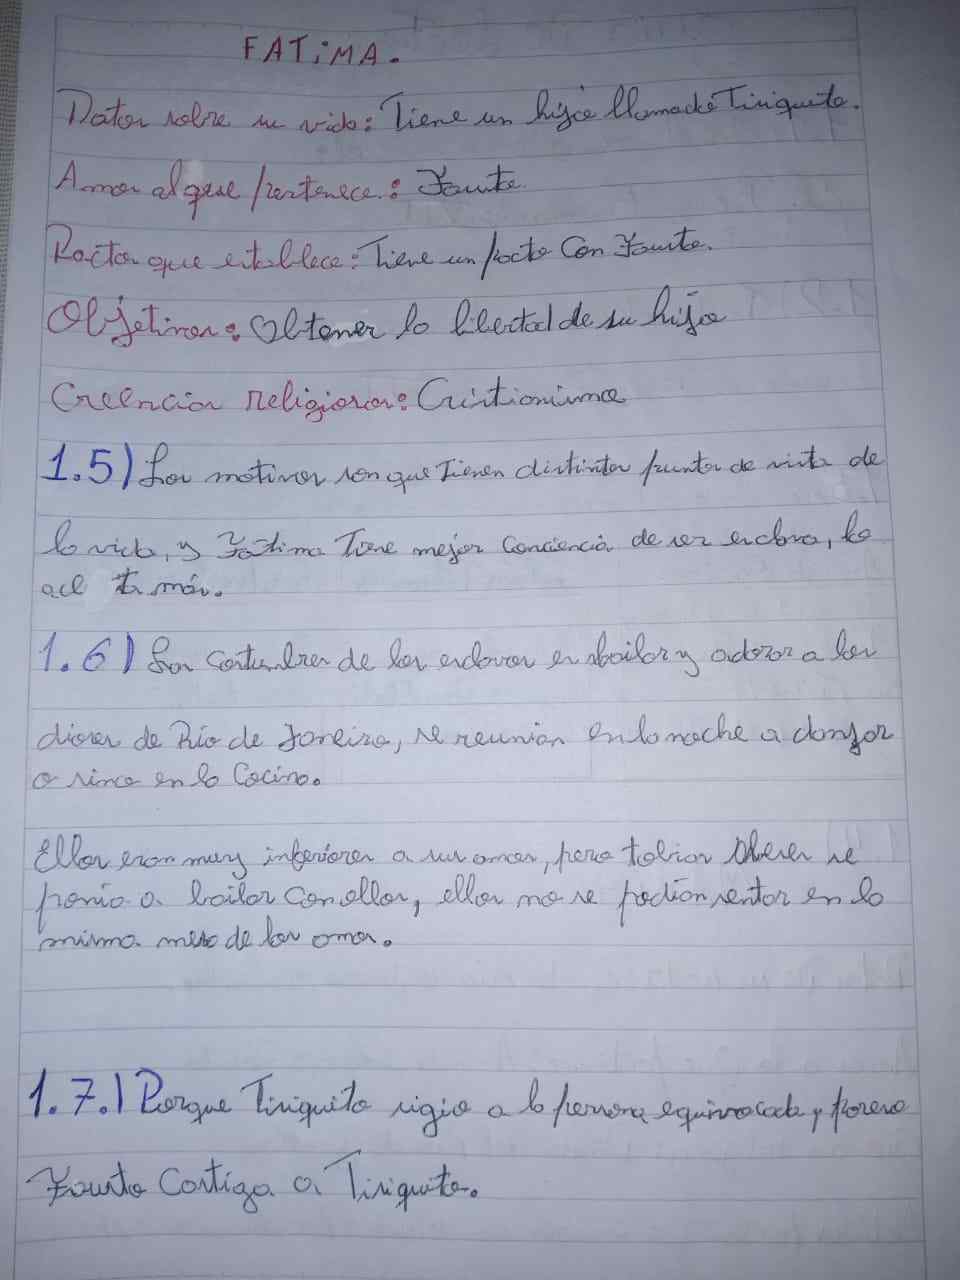 FATiMA.
Datos sobre su vida: Tiene un hijo llamado Tiriquito.
Amo al que pertenece: Fausto
Pactos que establece: Tiene un pacto Con Fausto.
Objetivos: Obtener la libertad de su hijo
Creencias religiosas: Cristianismo
1.5) Los motivos son que Tienen distintos puntos de vista de
la vida, y Fátima Tiene mejor Conciencia de ser esclava, lo
ace más.
1.6) Las Costumbres de los esclavos es bailar y adorar a los
dioses de Río de Janeiro, se reunian en la noche a danzar
o sino en la Cocina.
Ellos eran muy inferiores a sus amos, pero tobias se
ponia a bailar Con ellos, ellos no se podian sentar en la
misma mesa de los amos.
1.7.) Porque Tiriquito sigio a la persona equivocada, y por eso
Fausto Castiga a Tiriquito.